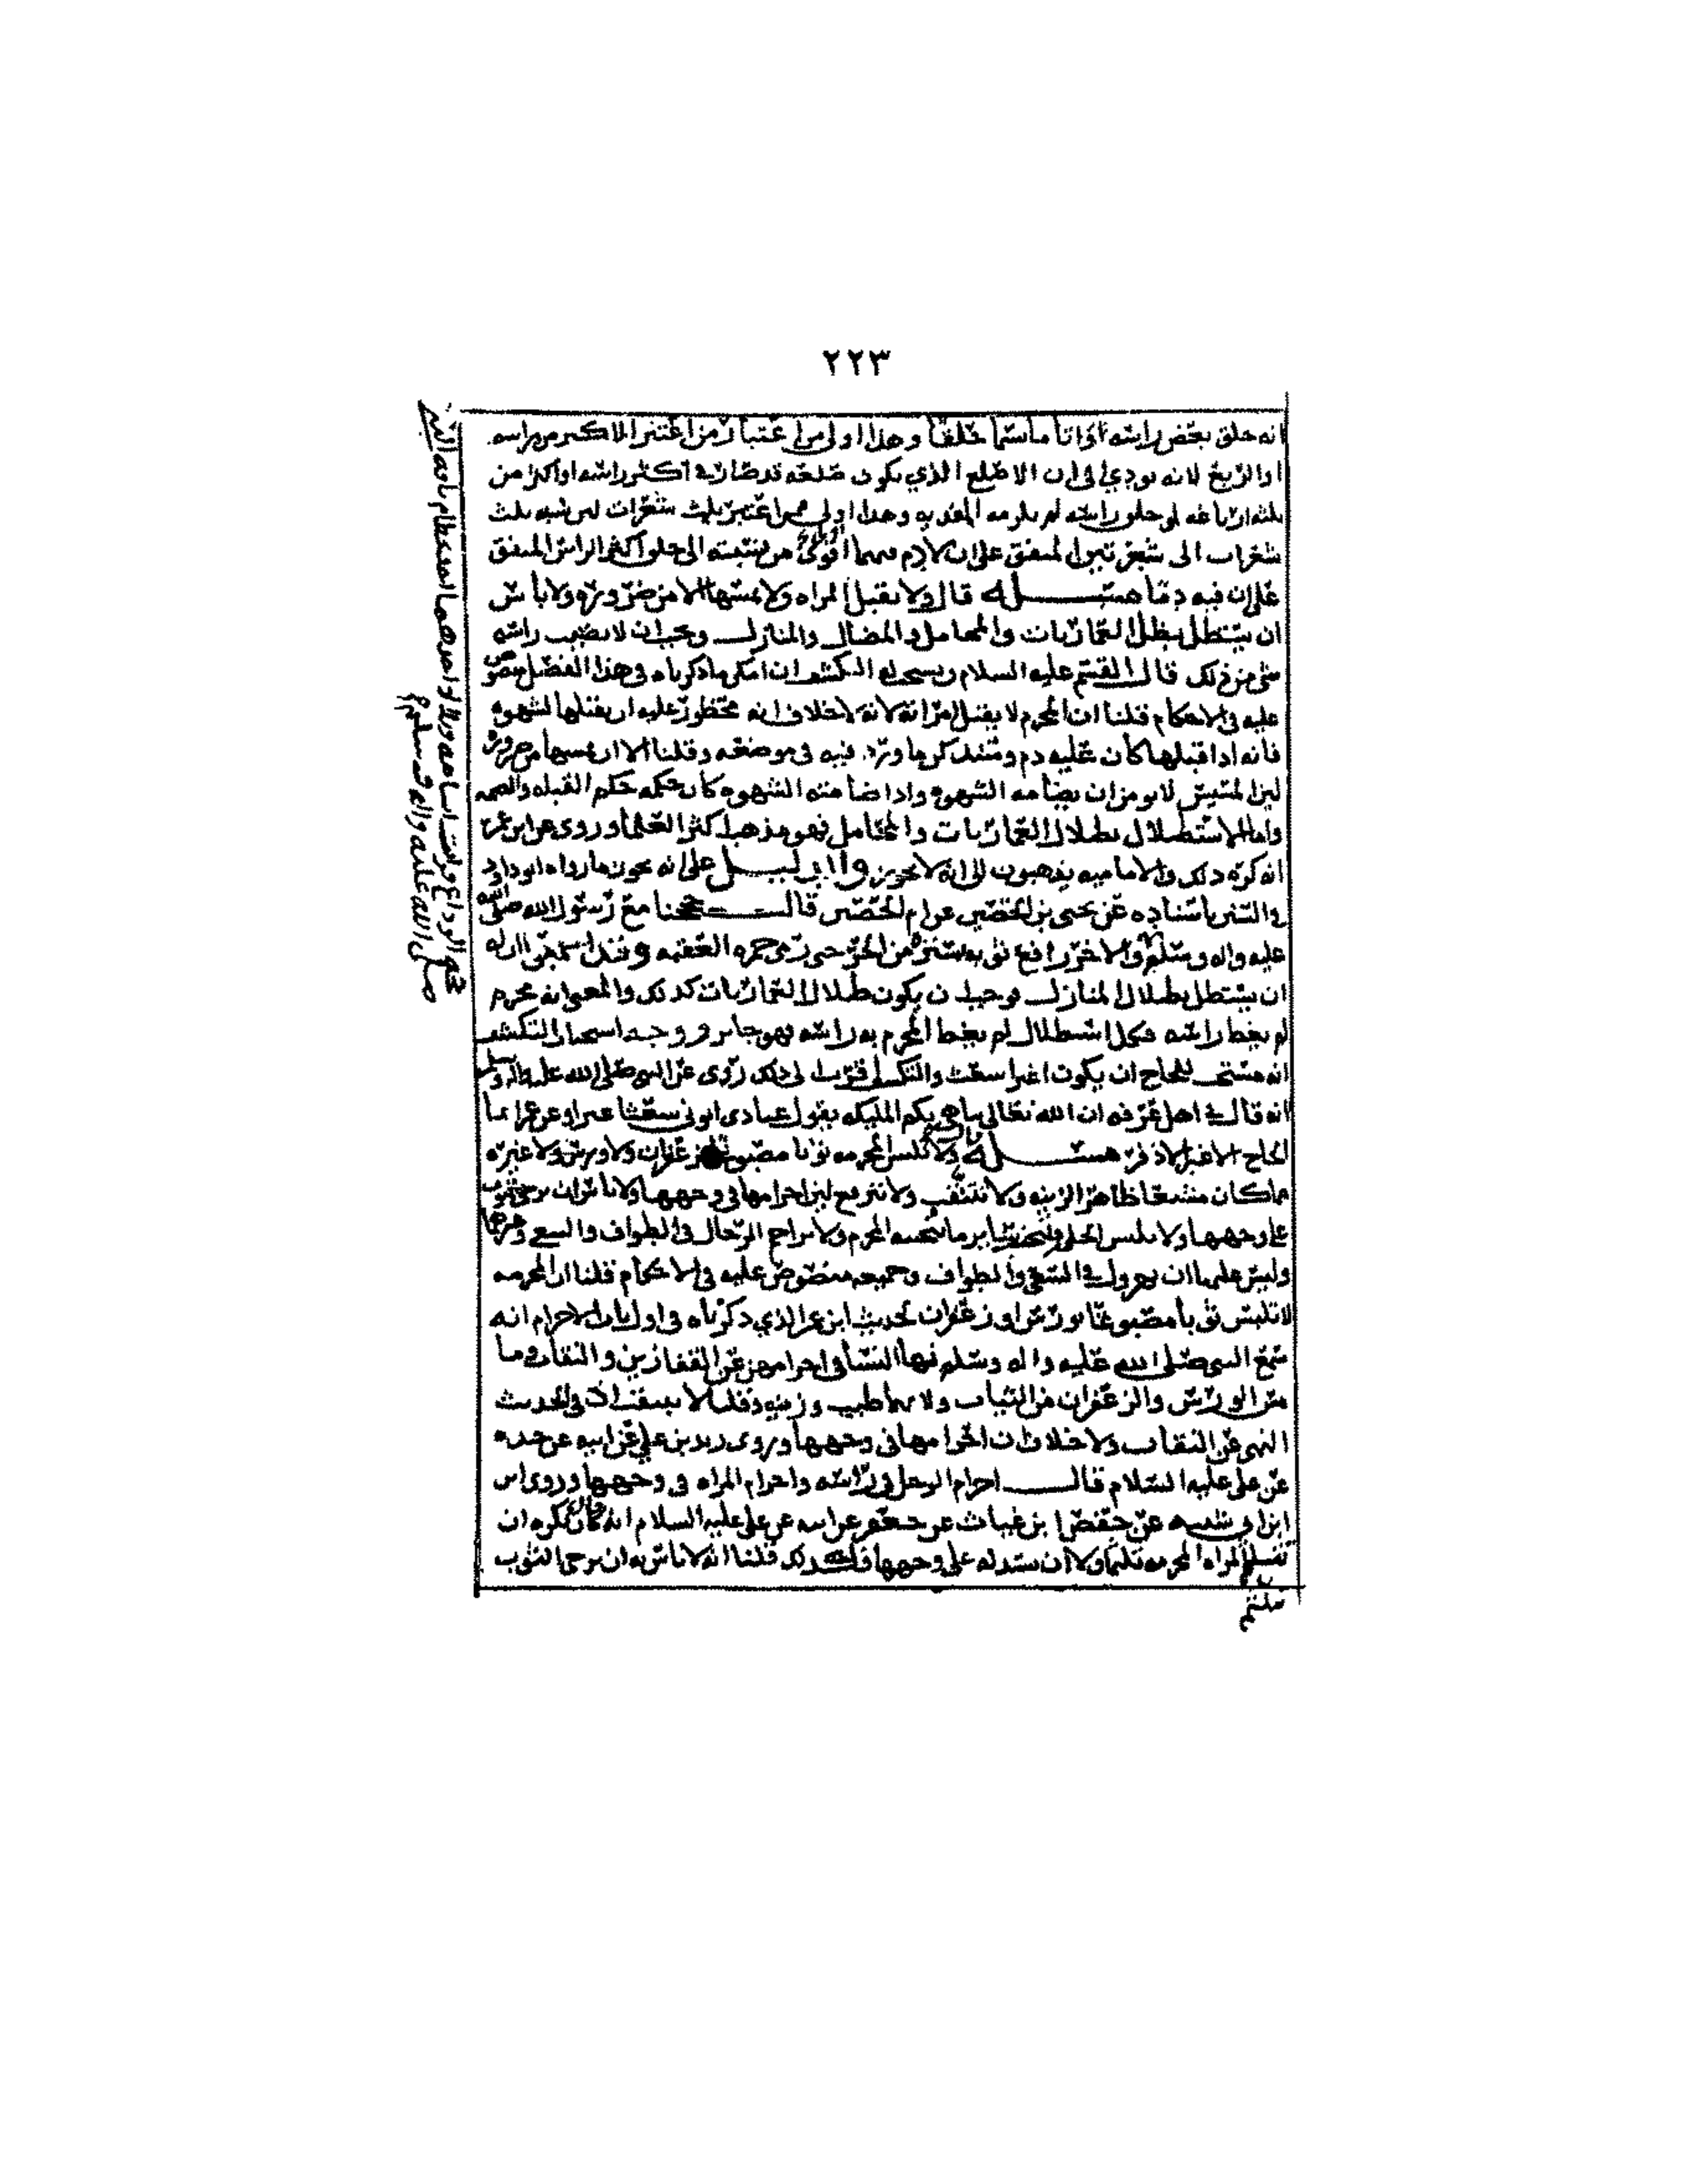 ٢٢٣
انه حلق بعض راسه او اتا ما سما حلقا وهذا اولى من اعتبار من اعتبر الاكثر من راسه
او الربع لانه يودي الى ان الاصلع الذي يكون صلعه قد صار في اكثر راسه او اكثر من
ثلثه ارباعه لو حلق راسه لم يلزمه الفديه وهذا اولى ممن اعتبر بثلث شعرات لان نسبه ثلث
شعرات الى شعر المتفق على ان لا دم فيهما اقوى من نسبته الى حلق اكثر الراس المتفق
على ان فيه دما مسـله قال ولا يقبل المراه ولا يمسها الا من ضروره ولا باس
ان يستظل بظل العماريات والمحامل والمضال والمنازل ويجب ان لا يصيب راسه
شي من ذلك قال القسم عليه السلام ويستحب له التكشف ان امكن ما ذكرناه وهذا الفصل منصوص
عليه في الاحكام قلنا ان المحرم لا يقبل امراته لانه لا خلاف انه محظور عليه ان يقبلها لشهوه
فانه اذا قبلها كان عليه دم وسنذكر ما ورد فيه في موضعه وقلنا الا ان يمسها من ضروره
لان المسيس لا يومن ان يضامه الشهوه واذا ضامته الشهوه كان حكمه حكم القبله والضمه
واما الاستظلال بظلال العماريات والمحامل فهو مذهب اكثر العلما وروي عن ابن عمر
انه كره ذلك والاماميه يذهبون الى انه لا يجوز والدليل على انه يجوز ما رواه ابو داود
في السنن باسناده عن يحيى بن الحصين عن ام الحصين قالت حججنا مع رسول الله صلى الله
عليه واله وسلم والاخر رافع ثوبه يستره من الحر حتى رمى جمره العقبه
ان يستظل بظلال المنازل فوجب ان يكون ظلال العماريات كذلك والمعنى انه محرم
لم يغط راسه فكل استظلال لم يغط المحرم به راسه فهو جائز ووجه استحباب التكشف
انه يستحب للحاج ان يكون اغبر اشعث والتكشف اقرب الى ذلك روي عن النبي صلى الله عليه واله وسلم
انه قال في اهل عرفه ان الله تعالى يباهي بكم المليكه يقول عبادي اتوني شعثا غبرا وعن عمر انما
الحاج الاغبر الاذفر مسـله قال ولا تلبس المحرمه ثوبا مصبوغا بزعفران ولا ورس ولا غيره
مما كان مشبعا ظاهر الزينه ولا تتنقب ولا تتبرقع لان احرامها في وجهها ولا باس ان ترخي الثوب
على وجهها ولا تلبس الحلي وتجتنب سائر ما تجنبه المحرم ولا تزاحم الرجال في الطواف والسعي وغيرهما
وليس عليها ان تهرول في السعي والطواف وجميعه منصوص عليه في الاحكام قلنا ان المحرمه
لا تلبس ثوبا مصبوغا بورس او زعفران لحديث ابن عمر الذي ذكرناه في اول باب الاحرام انه
سمع النبي صلى الله عليه واله وسلم نها النسا في احرامهن عن القفازين والنقاب وما
مس الورس والزعفران من الثياب ولانهما طيب وزينه وقلنا لا تتنقب لان في الحديث
النهي عن النقاب ولا خلاف ان احرامها في وجهها وروى زيد بن علي عن ابيه عن جده
عن علي عليه السلام قال احرام الرجل في راسه واحرام المراه في وجهها وروى ابن
ابن ابي شيبه عن حفص بن غياث عن جعفر عن ابيه عن علي عليه السلام انه كان يكره ان
تتلثم المراه المحرمه تلثما ولا ان تسدله على وجهها فلذلك قلنا انه لا باس به ان ترخي الثوب
تتلثم
حجه الوداع فرايت اسامه وبلالا واحدهما اخذ بخطام ناقه النبي
صلى الله عليه واله وسلم